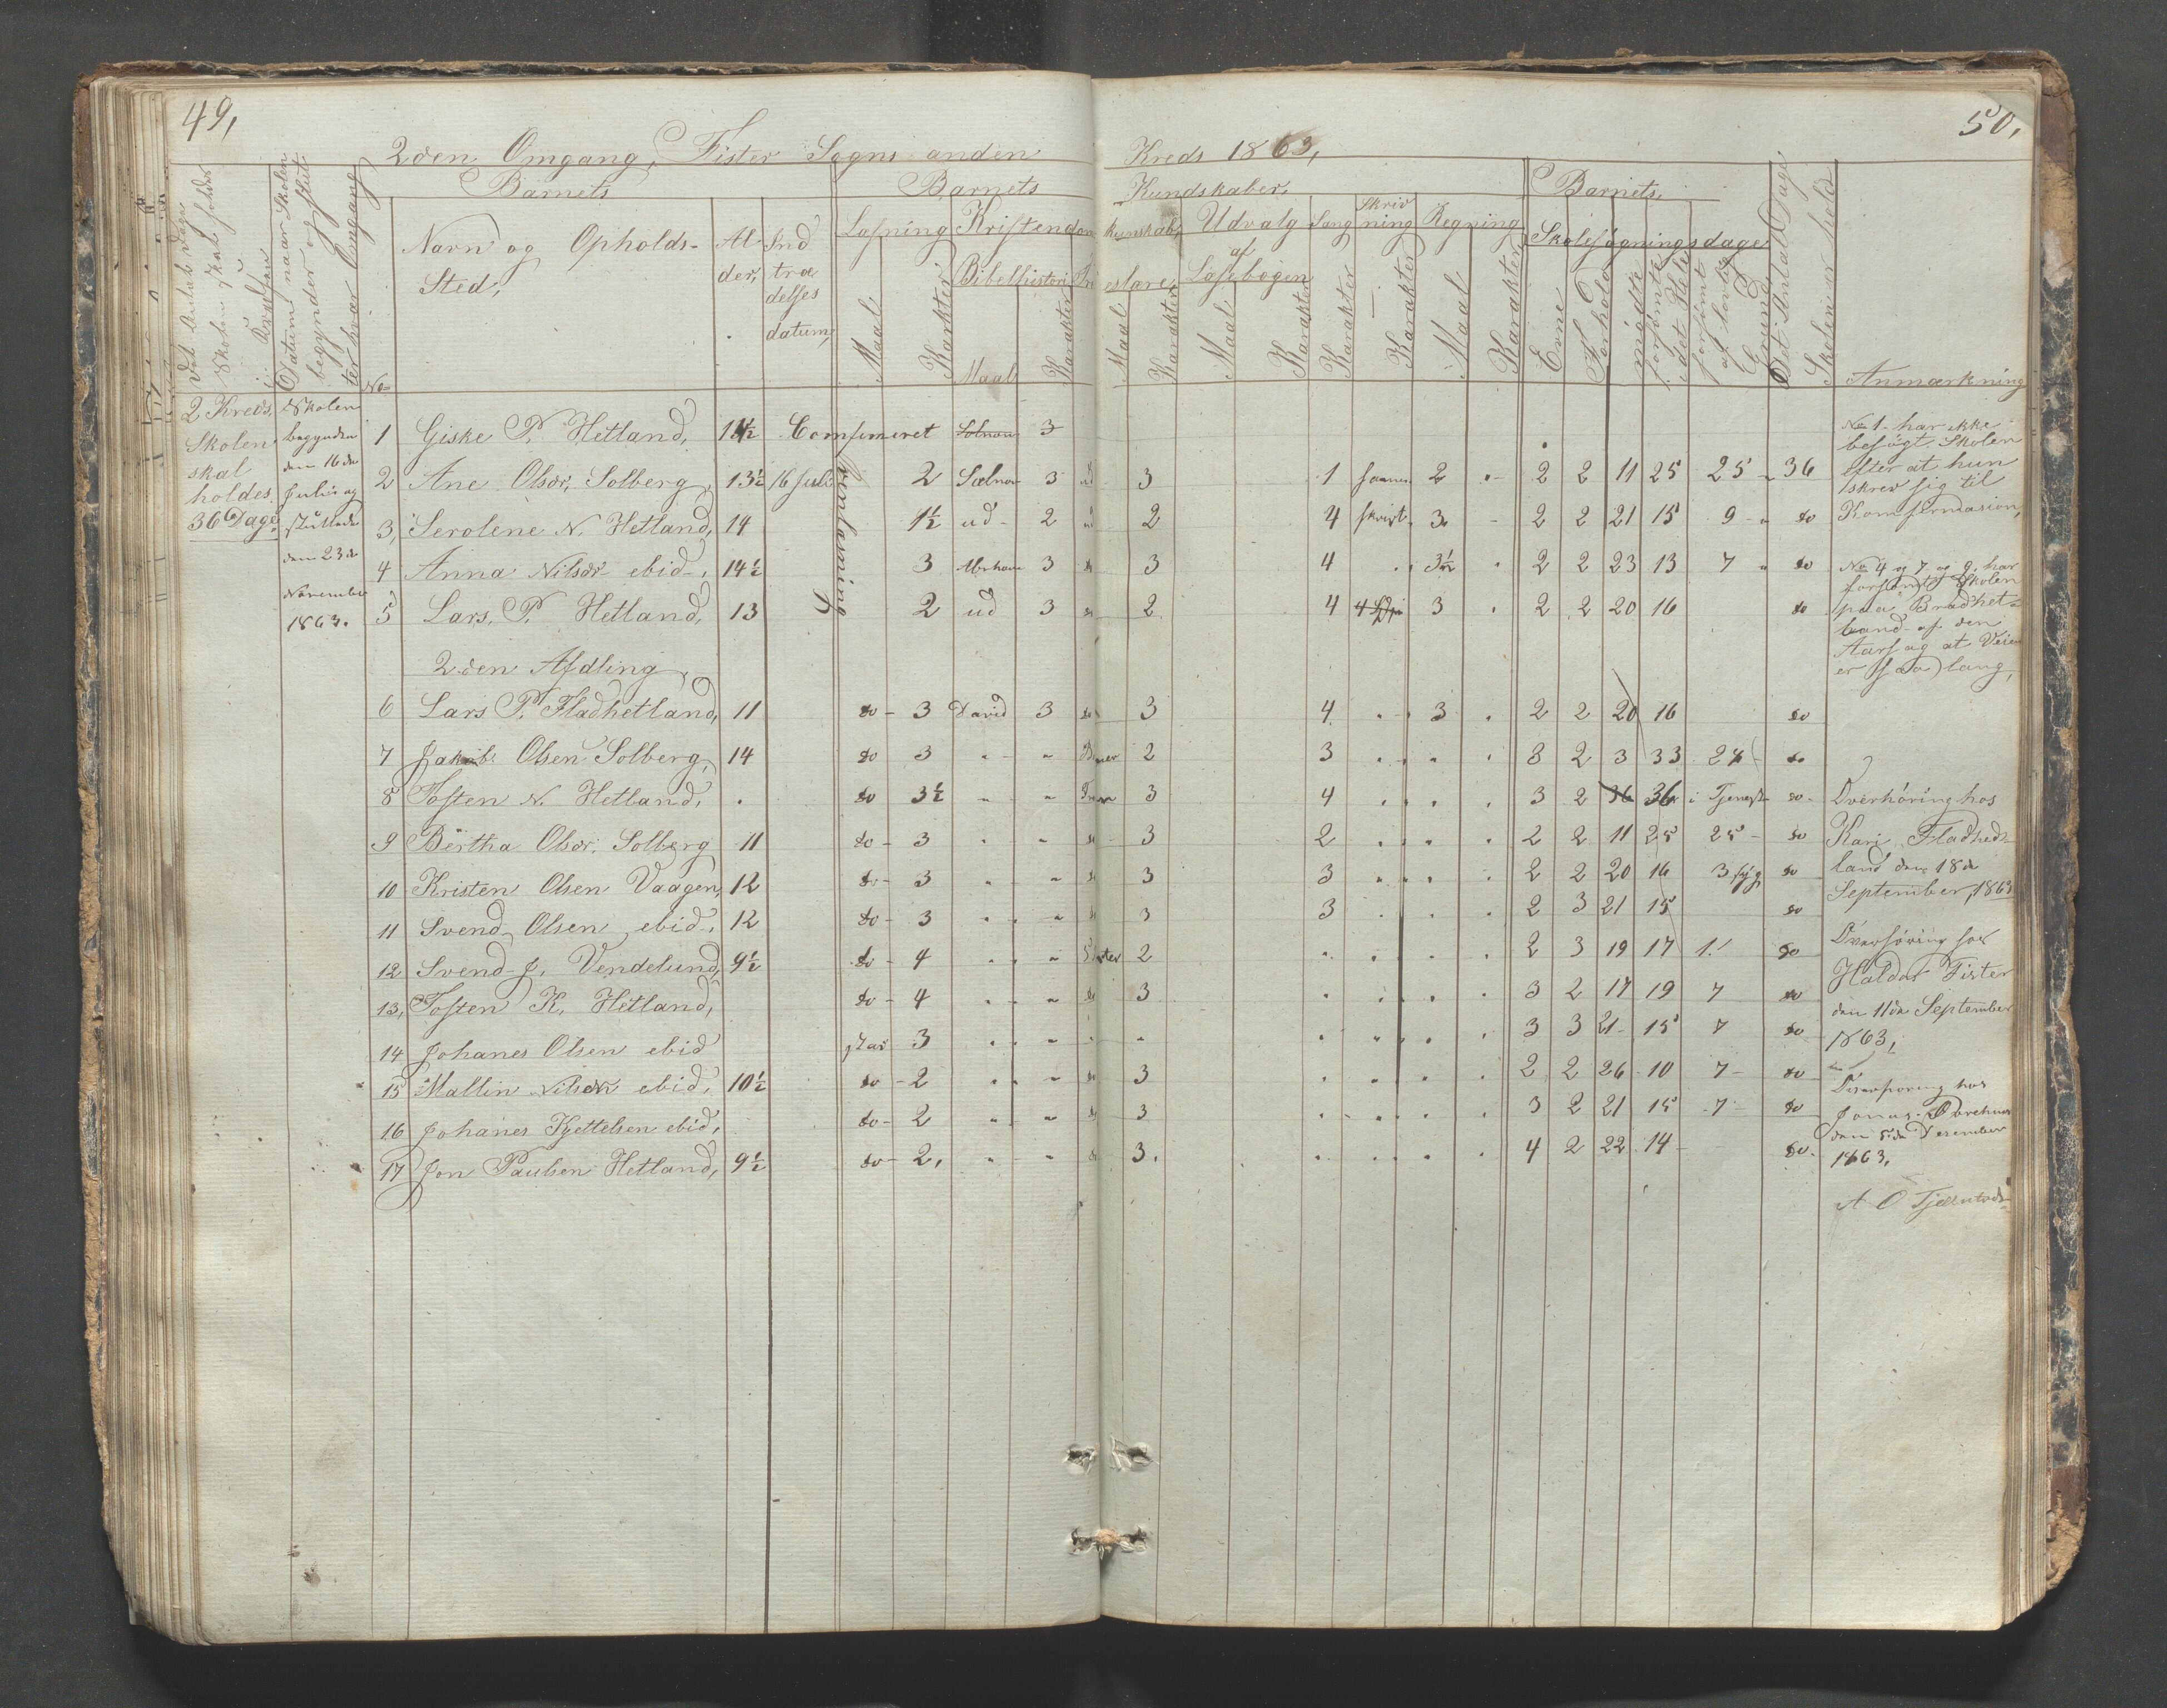 49,
50,
2den Omgang, Fister Sogns anden Kreds 1863,
Barnets
Barnets
Kundskaber,
Barnets,
Det Antal Dage Skolen skal holdes
Datum naar Skolen begynder og slut-
ter hvær Omgang
No
Navn og Opholds-
Sted,
Al-
der,
Ind
træ
delses
datum,
Læsning
Kristendom
kunskab,
Bibelhistori
Udvalg
af
Læsebogen
Sang
Skriv
ning
Regning
Skolesøgningsdage
Maal
Karakter
Maal
Karakter
Maal
Karakter
Maal
Karakter
Karakter
Karakter
Maal
Karakter
Evne
Forhold
møgdte
forsömte
Det Antal Dage
Skolen er holdt
Anmærkning
2 Kreds,
Skolen
skal
holdes
36 Dage
Skolen
begyndte
den 16de
Julius og
sluttede
den 23de
November
1863.
1 Giske P. Hetland, 14½ Comfirmeret 3
2 Ane Olsdr, Solberg 13½ 16 Juli 2 3 3 1 2 2 2 11 25 25 36
3, Serolene N. Hetland, 14 1½ ud 2 2 4 skrivt. 3 2 2 21 15 9 do
4 Anna Nilsdr ebid 14½ 3 3 3 4 3½ 2 2 23 13 7 do
5 Lars, P. Hetland, 13 2 ud 3 2 4 3 2 2 20 16 do
2den Afdling
6 Lars P. Fladhetland, 11 do 3 David 3 do 3 4 3 2 2 20 16 do
7 Jakob Olsen Solberg, 14 do 3 2 3 3 2 3 33 24 do
8 Tosten N. Hetland, do 3½ 3 4 3 2 36 36 i Tjeneste do
9 Bertha Olsdr. Solberg 11 do 3 3 2 2 2 11 25 25 do
10 Kristen Olsen Vaagen, 12 do 3 3 3 2 2 20 16 3 syg do
11 Svend Olsen ebid, 12 do 3 3 3 2 3 21 15 do
12 Svend J. Vendelund, 9½ do 4 2 2 3 19 17 1 do
13, Tosten K. Hetland, do 4 3 3 2 17 19 7 do
14 Johanes Olsen ebid star 3 3 3 21 15 7 do
15 Mallin Nilsdr ebid, 10½ do 2 3 2 2 26 10 7 do
16 Johanes Kjettelsen ebid, do 2 3 3 2 21 15 7 do
17 Jon Paulsen Hetland, 9½ do 2, 3. 4 2 22 14 do
No 1 har ikke
besøgt Skolen
efter at hun
skrev sig til
Komfirmasion,
No 4 og 7 og 9, har
forsømt Skolen
paa Bradhet-
land af den
Aarsag at Veien
er saa lang,
Overhöring hos
Kari Fladhed-
land den 18de
September, 1863
Overhöring hos
Haldor Fister
den 11de September
1863,
Overhöring hos
Jonas
den 5de Desember
1863,